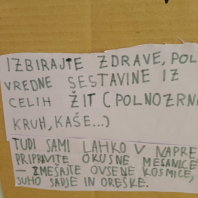 IZBIRAJTE ZDRAVE, POL
VREDNE SESTAVINE IZ
CELIH ŽIT (POLNOZRNA
KRUH, KAŠE...)
TUDI SAMI LAHKO V NAPRE
PRIPRAVITE OKUSNE MEŠANICE
– ZMEŠAJTE OVSENE KOSMIČE,
SUHO SADJE IN OREŠKE.